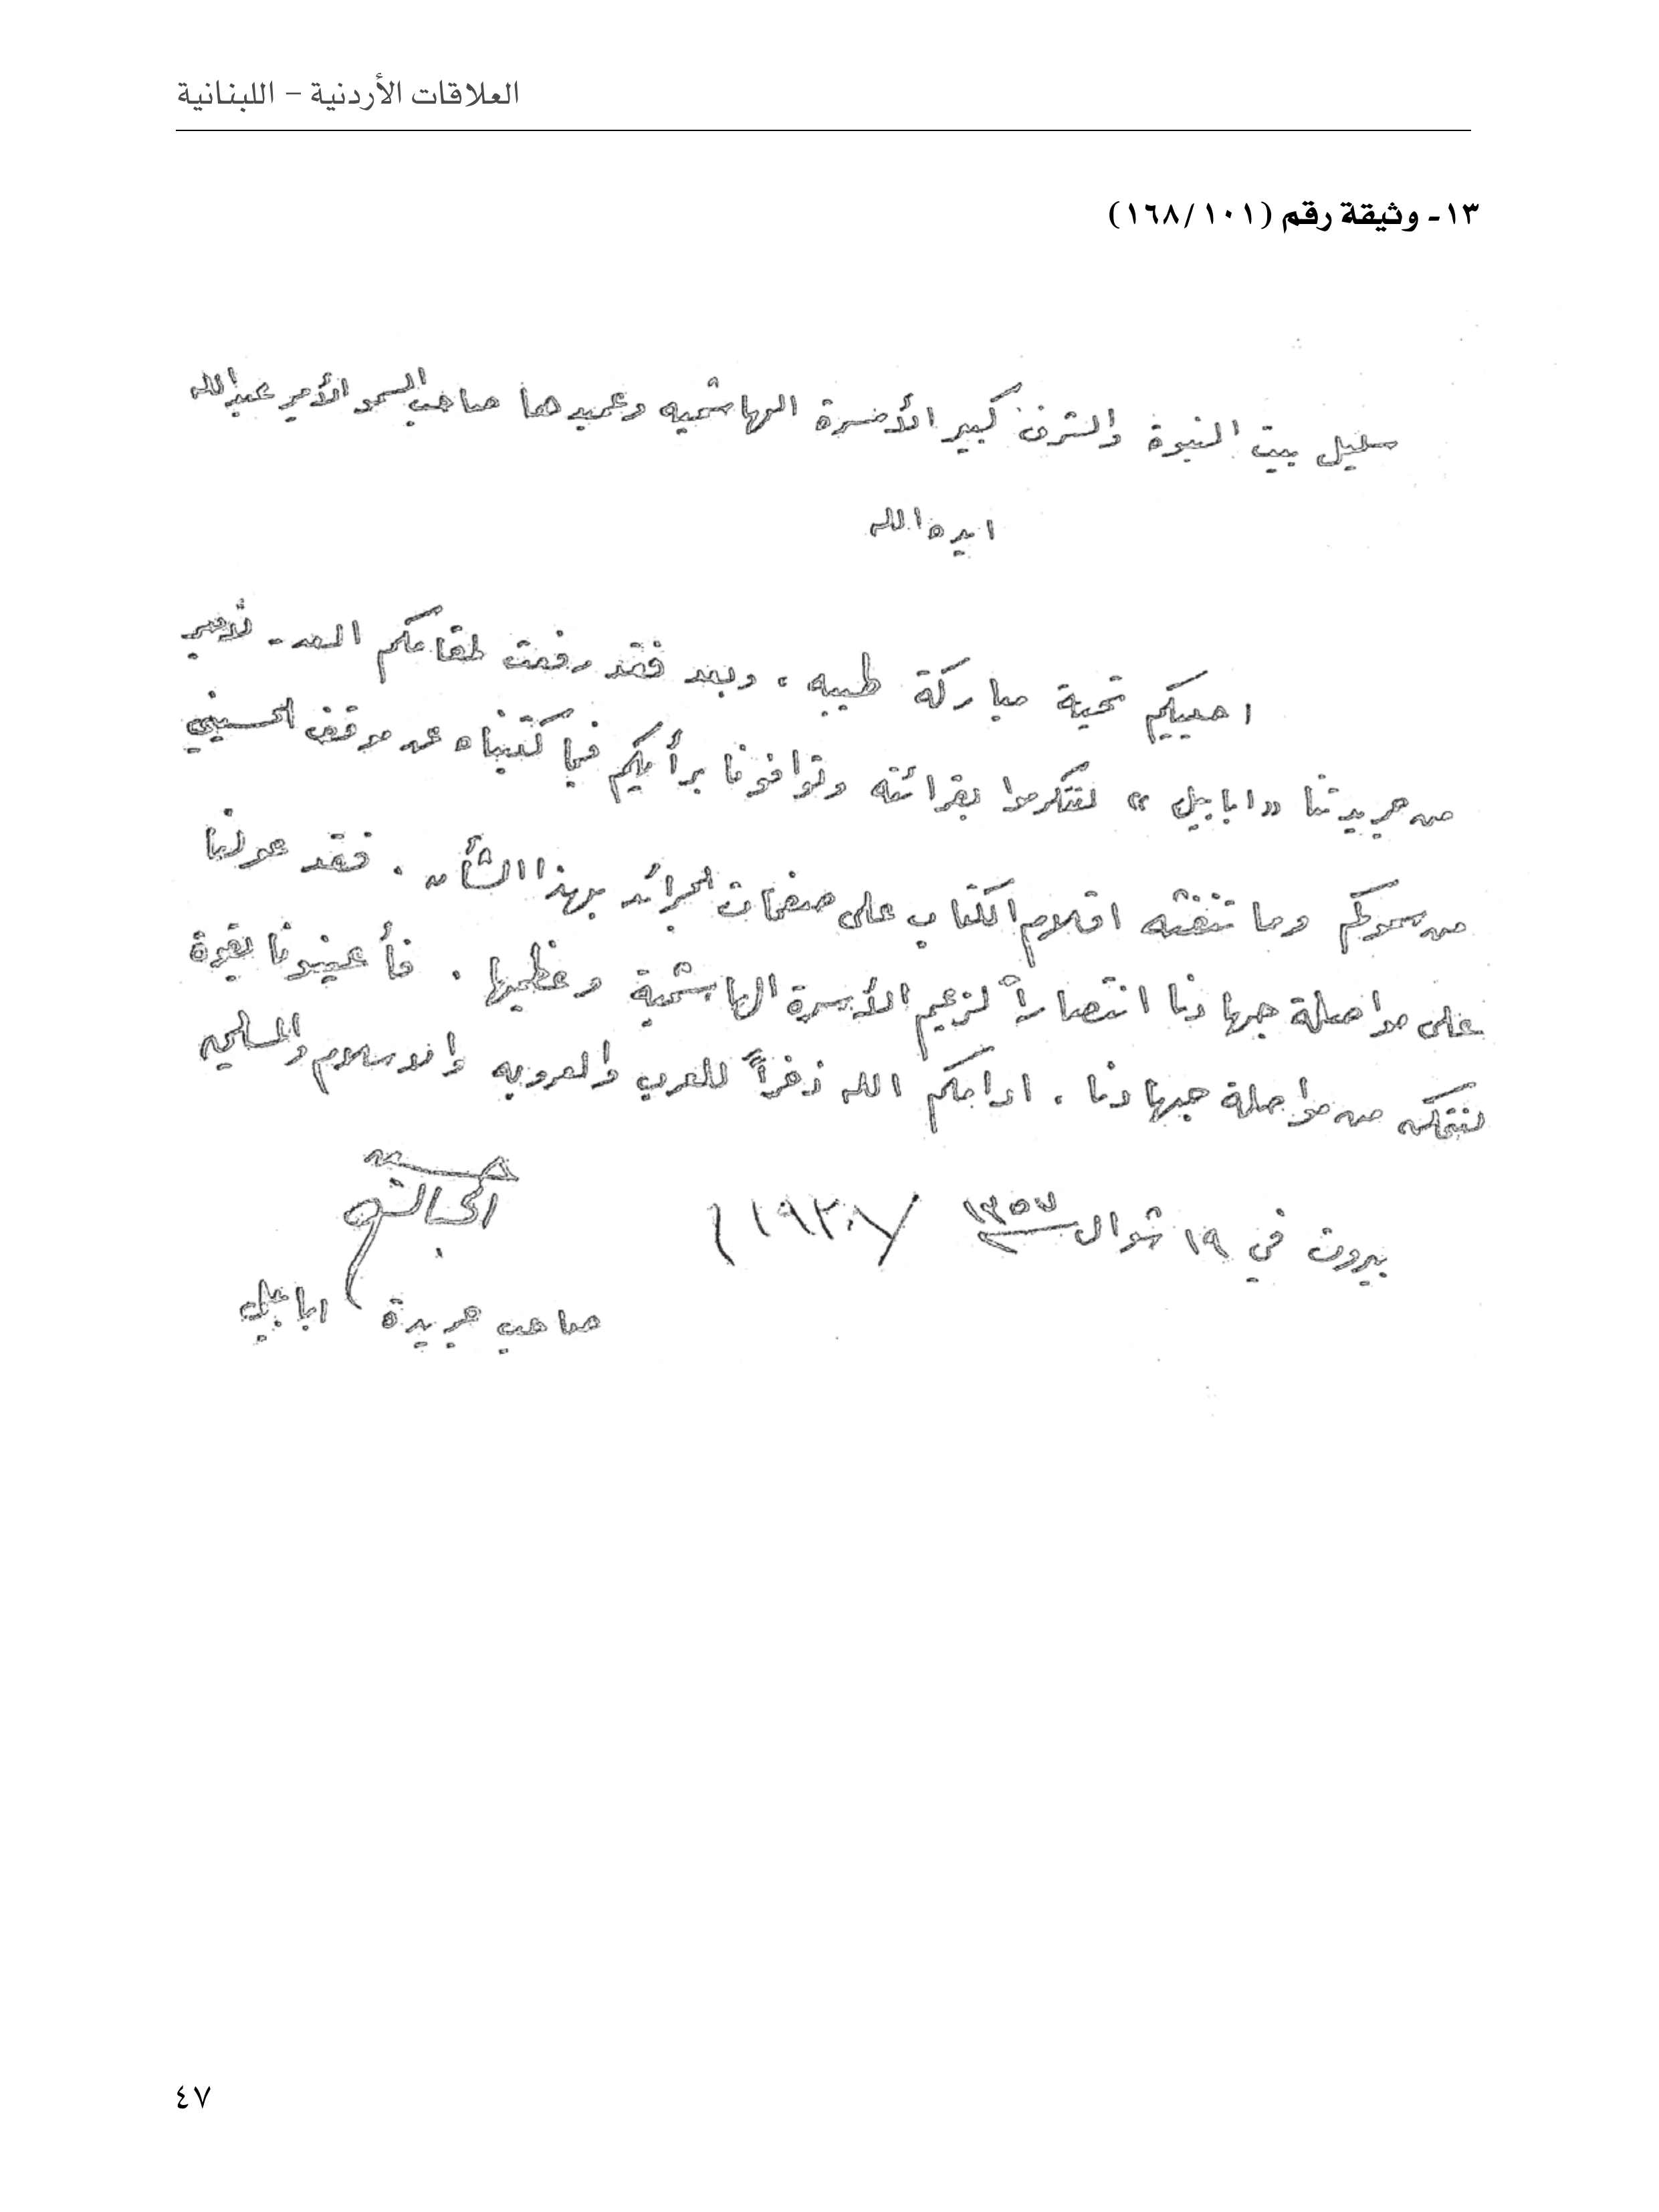 العلاقات الأردنية – اللبنانية
١٣- وثيقة رقم (١٦٨/١٠١)
سليل بيت النبوة والشرف كبير الأسرة الهاشميه وعميدها صاحب السمو الأمير عبدالله
ايده الله
احييكم تحية مباركة طيبه ، وبعد فقد رفعت لمقامكم العدد الأخير
من جريدتنا «ابابيل» لتتكرموا بقرائته وتوافونا برأيكم فيما كتبناه عن موقف الحسيني
من سموكم وما تنفثه اقلام الكتاب على صفحات الجرائد بهذا الشأن . فقد عولنا
على مواصلة جهادنا انتصاراً لزعيم الأسرة الهاشمية وعظيمها . فأعينونا بقوة
لنتمكن من مواصلة جهادنا . ادامكم الله ذخراً للعرب والعروبه والاسلام والمسلمين
بيروت في ١٩ شوال ١٣٥٧ (١٩٣٨)
حسين
صاحب جريدة ابابيل
٤٧